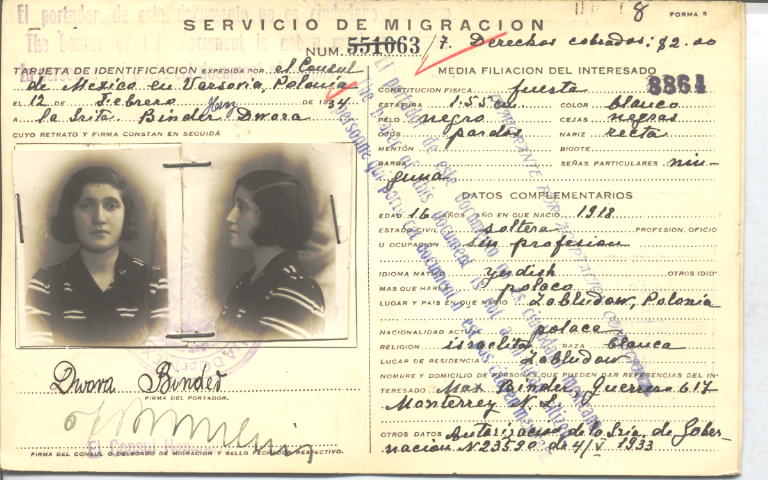 El portador de este documento no es ciudadano
The bearer of document is not a
SERVICIO DE MIGRACION
8
FORMA 5
NUM. 551063 / 7. Derechos cobrados: $2.00
TARJETA DE IDENTIFICACION EXPEDIDA POR el Consul
de Mexico en Varsovia, Polonia
EL 12 DE Febrero DE 1934
A la Srita. Binder Dwora
CUYO RETRATO Y FIRMA CONSTAN EN SEGUIDA
Dwora Binder
FIRMA DEL PORTADOR.
El Consul
FIRMA DEL CONSUL O DELEGADO DE MIGRACION Y SELLO FECHADOR RESPECTIVO.
MEDIA FILIACION DEL INTERESADO
8864
CONSTITUCION FISICA fuerte
ESTATURA 1.55 cm. COLOR blanco
PELO negro CEJAS negras
OJOS pardos NARIZ recta
MENTÓN BIGOTE
BARBA SEÑAS PARTICULARES nin-
guna
DATOS COMPLEMENTARIOS
EDAD 16 AÑOS AÑO EN QUE NACIO 1918
ESTADO CIVIL soltera PROFESION, OFICIO
U OCUPACION sin profesion
IDIOMA NATIVO yidish OTROS IDIO-
MAS QUE HABLA polaco
LUGAR Y PAIS EN QUE NACIO Zabludow, Polonia
NACIONALIDAD ACTUAL polaca
RELIGION israelita RAZA blanca
LUGAR DE RESIDENCIA Zabludow
NOMBRE Y DOMICILIO DE PERSONAS QUE PUEDEN DAR REFERENCIAS DEL IN-
TERESADO Max Binder, Guerrero 617
Monterrey N.L.
OTROS DATOS Autorizacion de la Sria. de Gober-
nacion N. 23590 de 4/V 1933
El portador de este documento no es ciudadano
The bearer of this document is not a
personne qui porte cet document